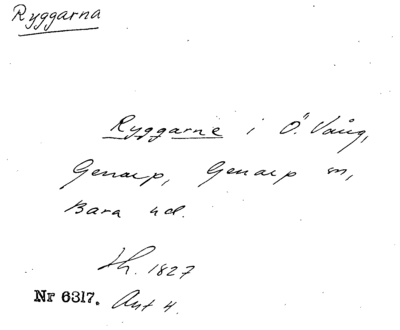 Ryggarna
Ryggarne i Ö. Vång,
Genarp, Genarp sn,
Bara hd.
Sk. 1827
Nr 6317. Akt 4.